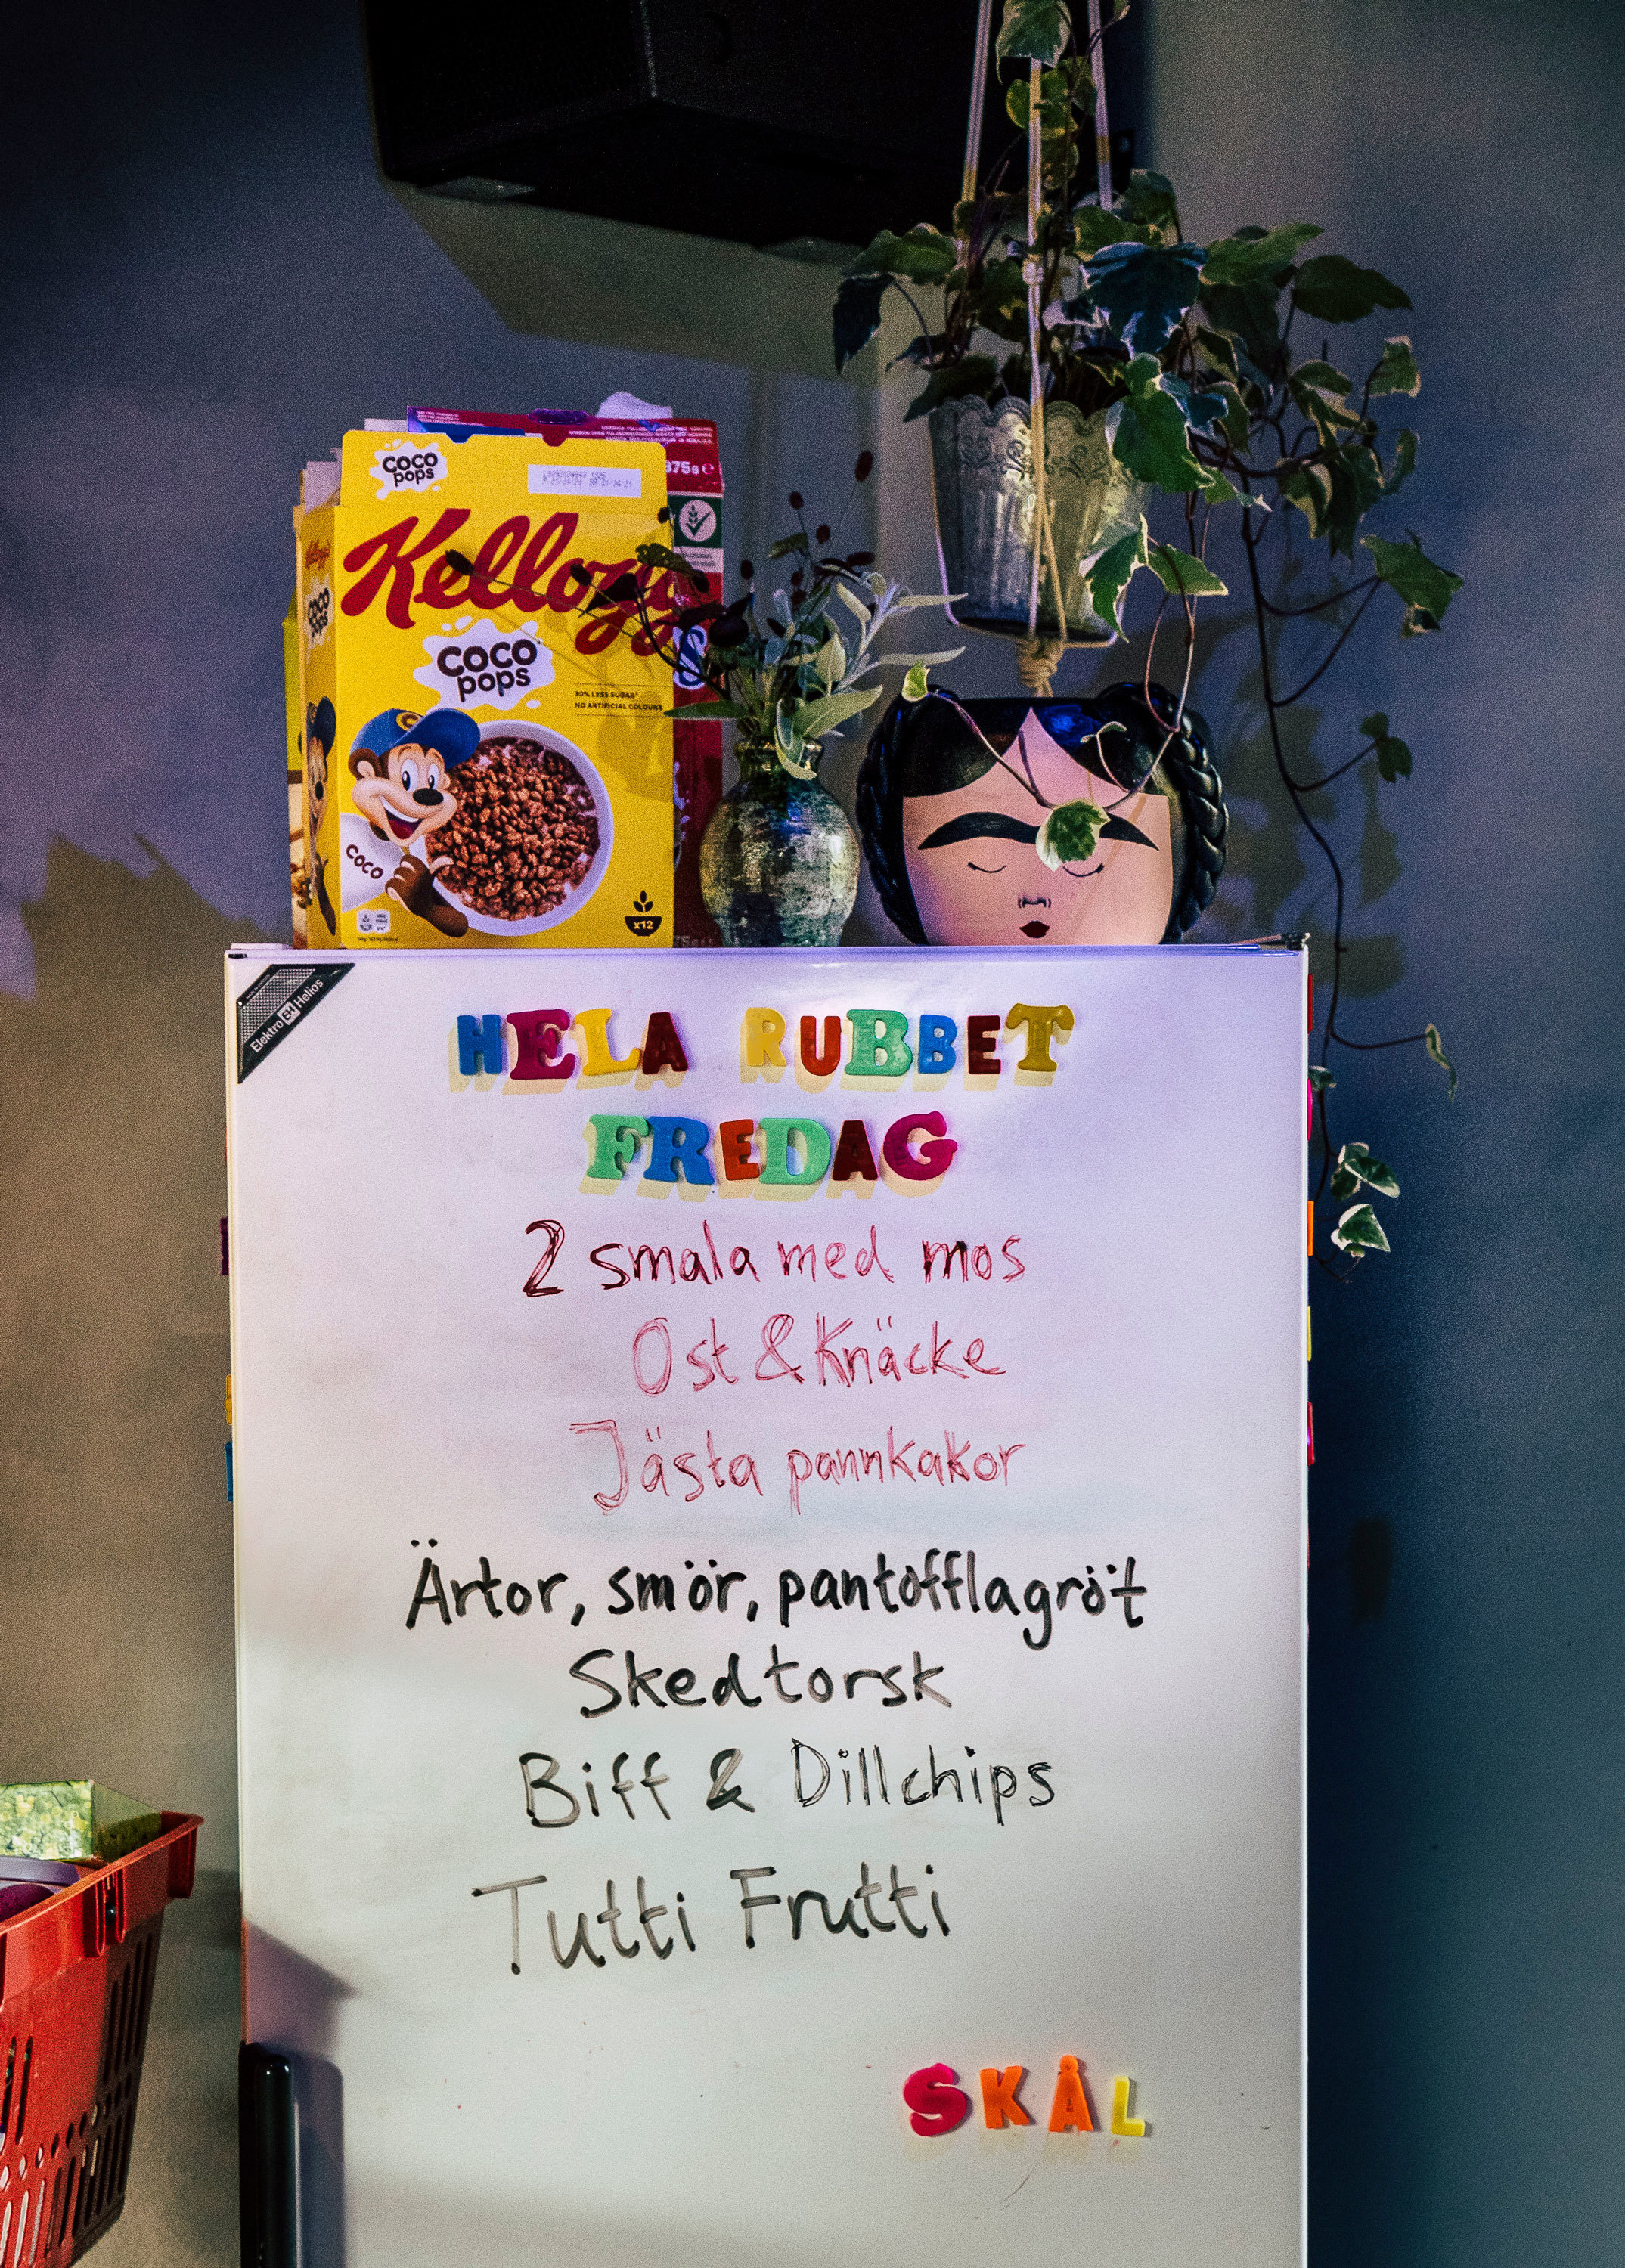 coco
pops
Kellogg
375g e
coco
pops
30% LESS SUGAR*
NO ARTIFICIAL COLOURS
COCO
x12
Elektro Helios
HELA RUBBET
FREDAG
2 smala med mos
Ost & Knäcke
Jästa pannkakor
Ärtor, smör, pantofflagröt
Skedtorsk
Biff & Dillchips
Tutti Frutti
SKÅL